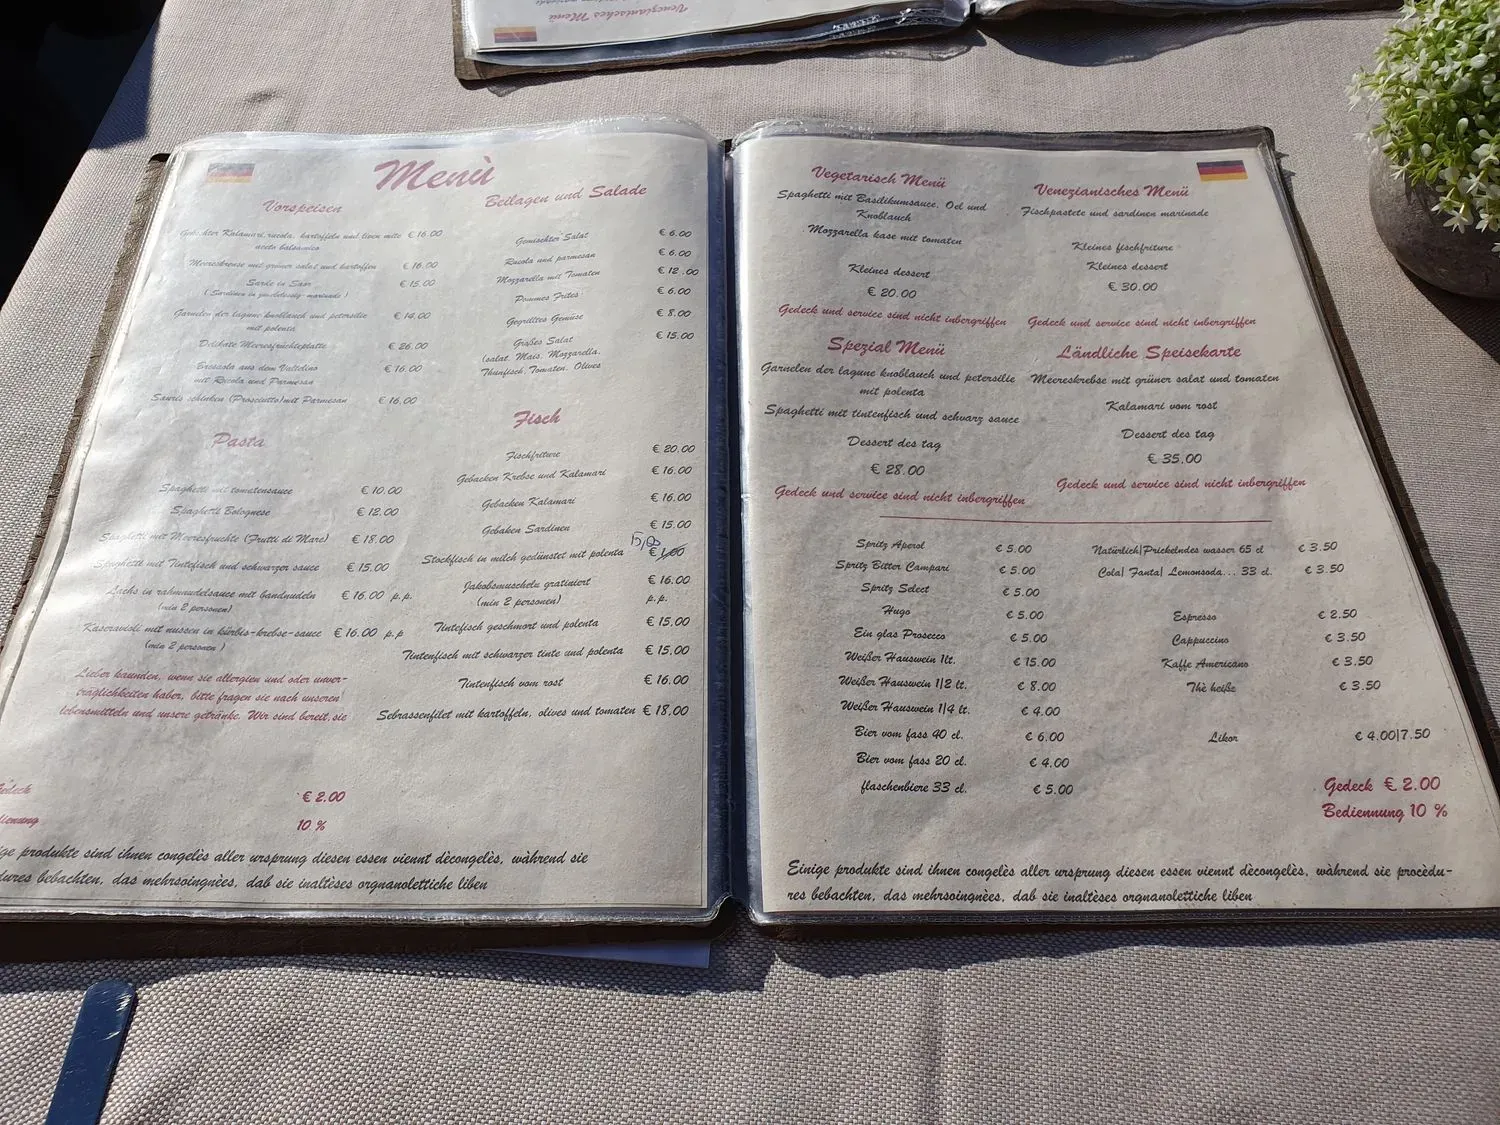 Venezianisches Menü
Menù
Vorspeisen
Gekochter Kalamari, rucola, kartoffeln und tiven mite € 16.00
aceto balsamico
Meereskrense mit grüner salat und kartoffen € 16.00
Sarde in Saor € 15.00
( Sardinen in marinade )
Garnelen der lagune knoblauch und petersilie € 14.00
mit polenta
Delikate Meeresfrüchteplatte € 26.00
Bresaola aus dem Valtidino € 16.00
mit Rucola und Parmesan
Sauris schinken (Prosciutto) mit Parmesan € 16.00
Pasta
Spaghetti mit tomatensauce € 10.00
Spaghetti Bolognese € 12.00
Spaghetti mit Meeresfruchte (Frutti di Mare) € 18.00
Spaghetti mit Tintefisch und schwarzer sauce € 15.00
Lachs in rahmnudelsauce mit bandnudeln € 16.00 p.p.
(min 2 personen)
Käseravioli mit nussen in kürbis-krebse-sauce € 16.00 p.p
(min 2 personen )
Lieber kaunden, wenn sie allergien und oder unver-
träglichkeiten haber, bitte fragen sie nach unseren
lebensmitteln und unsere getränke. Wir sind bereit, sie
Beilagen und Salade
Gemischter Salat € 6.00
Rucola und parmesan € 6.00
Mozzarella mit Tomaten € 12 .00
Pommes Frites € 6.00
Gegrilltes Gemüse € 8.00
Großes Salat € 15.00
(salat, Mais, Mozzarella,
Thunfisch, Tomaten, Olives
Fisch
Fischfriture € 20.00
Gebacken Krebse und Kalamari € 16.00
Gebacken Kalamari € 16.00
Gebaken Sardinen € 15.00
15,00
Stockfisch in milch gedünstet mit polenta
Jakobsmuscheln gratiniert € 16.00
(min 2 personen) p.p.
Tintefisch geschmort und polenta € 15.00
Tintenfisch mit schwarzer tinte und polenta € 15.00
Tintenfisch vom rost € 16.00
Sebrassenfilet mit kartoffeln, olives und tomaten € 18.00
Gedeck € 2.00
10 %
produkte sind ihnen congelès aller ursprung diesen essen viennt dècongelès, während sie
bebachten, das mehrsoingnèes, dab sie inaltèses orgnanolettiche liben
Vegetarisch Menü
Spaghetti mit Basilikumsauce, Oel und
Knoblauch
Mozzarella kase mit tomaten
Kleines dessert
€ 20.00
Gedeck und service sind nicht inbergriffen
Venezianisches Menü
Fischpastete und sardinen marinade
Kleines fischfriture
Kleines dessert
€ 30.00
Gedeck und service sind nicht inbergriffen
Spezial Menü
Garnelen der lagune knoblauch und petersilie
mit polenta
Spaghetti mit tintenfisch und schwarz sauce
Dessert des tag
€ 28.00
Gedeck und service sind nicht inbergriffen
Ländliche Speisekarte
Meereskrebse mit grüner salat und tomaten
Kalamari vom rost
Dessert des tag
€ 35.00
Gedeck und service sind nicht inbergriffen
Spritz Aperol € 5.00
Spritz Bitter Campari € 5.00
Spritz Select € 5.00
Hugo € 5.00
Ein glas Prosecco € 5.00
Weißer Hauswein 1lt. € 15.00
Weißer Hauswein 1|2 lt. € 8.00
Weißer Hauswein 1|4 lt. € 4.00
Bier vom fass 40 cl. € 6.00
Bier vom fass 20 cl. € 4.00
flaschenbiere 33 cl. € 5.00
Natürlich|Prickelndes wasser 65 cl € 3.50
Cola| Fanta| Lemonsoda... 33 cl. € 3.50
Espresso € 2.50
Cappuccino € 3.50
Kaffe Americano € 3.50
Thè heiße € 3.50
Likor € 4.00|7.50
Gedeck € 2.00
Bediennung 10 %
Einige produkte sind ihnen congelès aller ursprung diesen essen viennt dècongelès, während sie procèdu-
res bebachten, das mehrsoingnèes, dab sie inaltèses orgnanolettiche liben